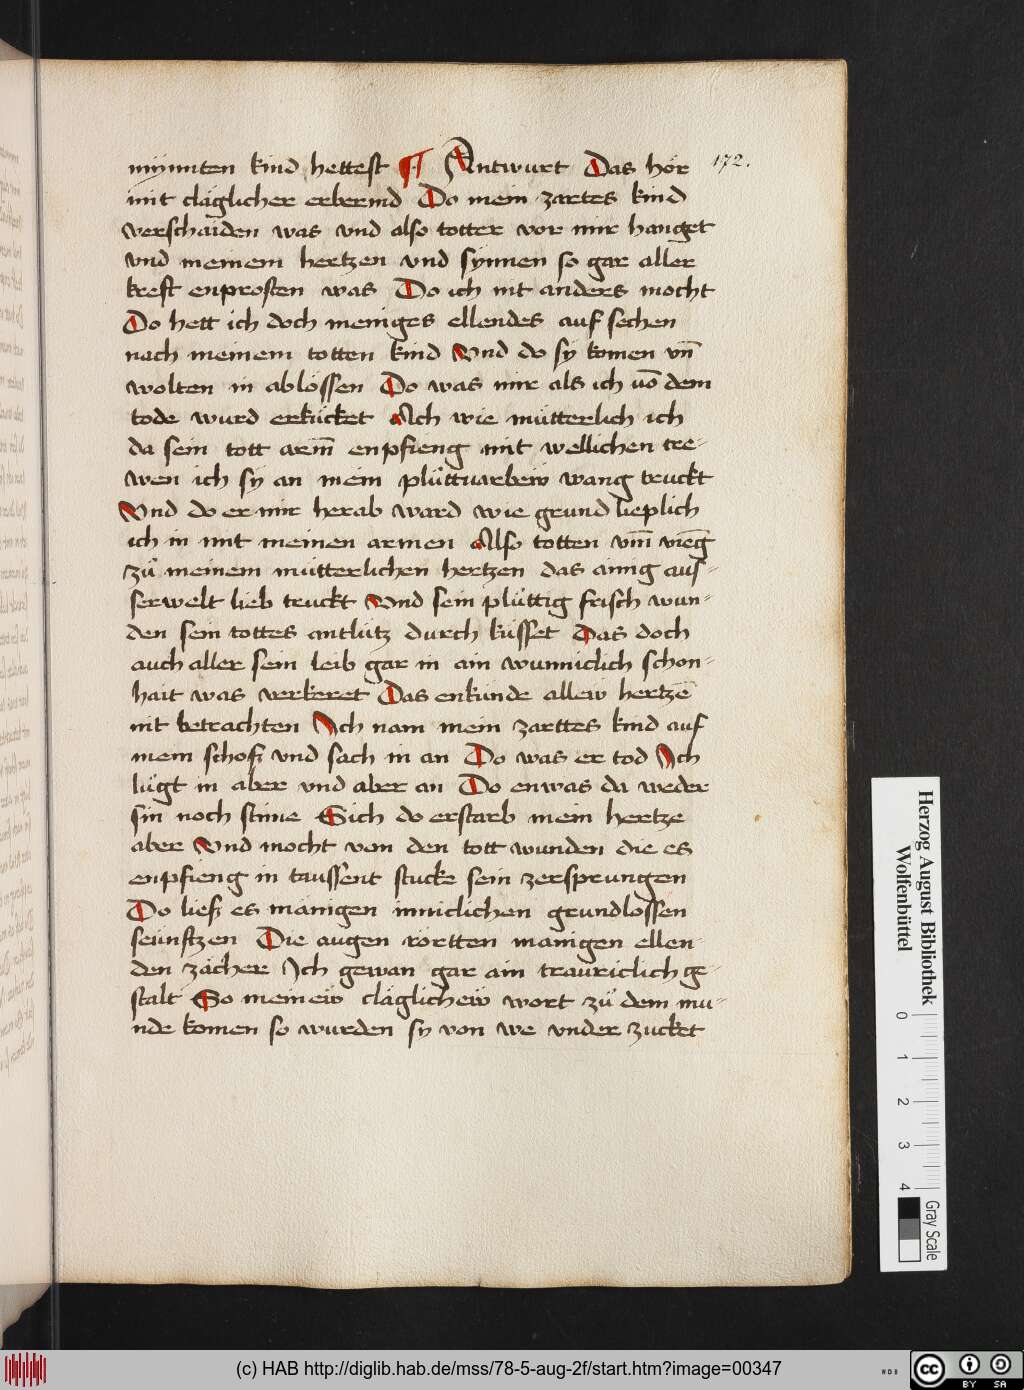 mÿnnten kind hettest ¶ Antwurt Das hör
172.
mit cläglicher erbermd Do mein zartes kind
verschaiden was vnd also totter vor mir hanget
vnd meinem hertzen vnd sÿnnen so gar aller
kreft enprosten was Do ich nit anders mocht
Do hett ich doch meniges ellendes auf sechen
nach meinem totten kind Vnd do sÿ komen vn̄
wolten in ablössen Do was mir als ich vō dem
tode wurd erkücket Ach wie mütterlich ich
da sein tott arm̄ enpfieng mit wellichen tre-
wen ich sÿ an mein plüttuarbew wang truckt
Vnd do er mir herab ward wie grund lieplich
ich in mit meinen armen Also totten vm̄ vieng
zů meinem mütterlichen hertzen das ainig aus-
serwelt lieb truckt Vnd sein plüttig frisch wun-
den sein tottes antlütz durch küsset Das doch
auch aller sein leib gar in ain wunniclich schon-
hait was verkeret Das enkunde allew hertzē
nit betrachten Ich nam mein zarttes kind auf
mein schoß vnd sach in an Do was er tod Ich
lůgt in aber vnd aber an Do enwas da weder
sin noch stime Sich do erstarb mein hertze
aber Vnd mocht von den tott wunden die es
enpfieng in taussent stucke sein zersprungen
Do ließ es mänigen inniclichen grundlossen
seünftzen Die augen rörtten manigen ellen-
den zächer Ich gewan gar ain trauriclich ge-
stalt So meinew cläglichew wort zů dem mu-
nde komen so wurden sÿ von we vnder zucket
Herzog August Bibliothek
Wolfenbüttel
0
1
2
3
4
Gray Scale
(c) HAB http://diglib.hab.de/mss/78-5-aug-2f/start.htm?image=00347
WDB
cc
BY SA